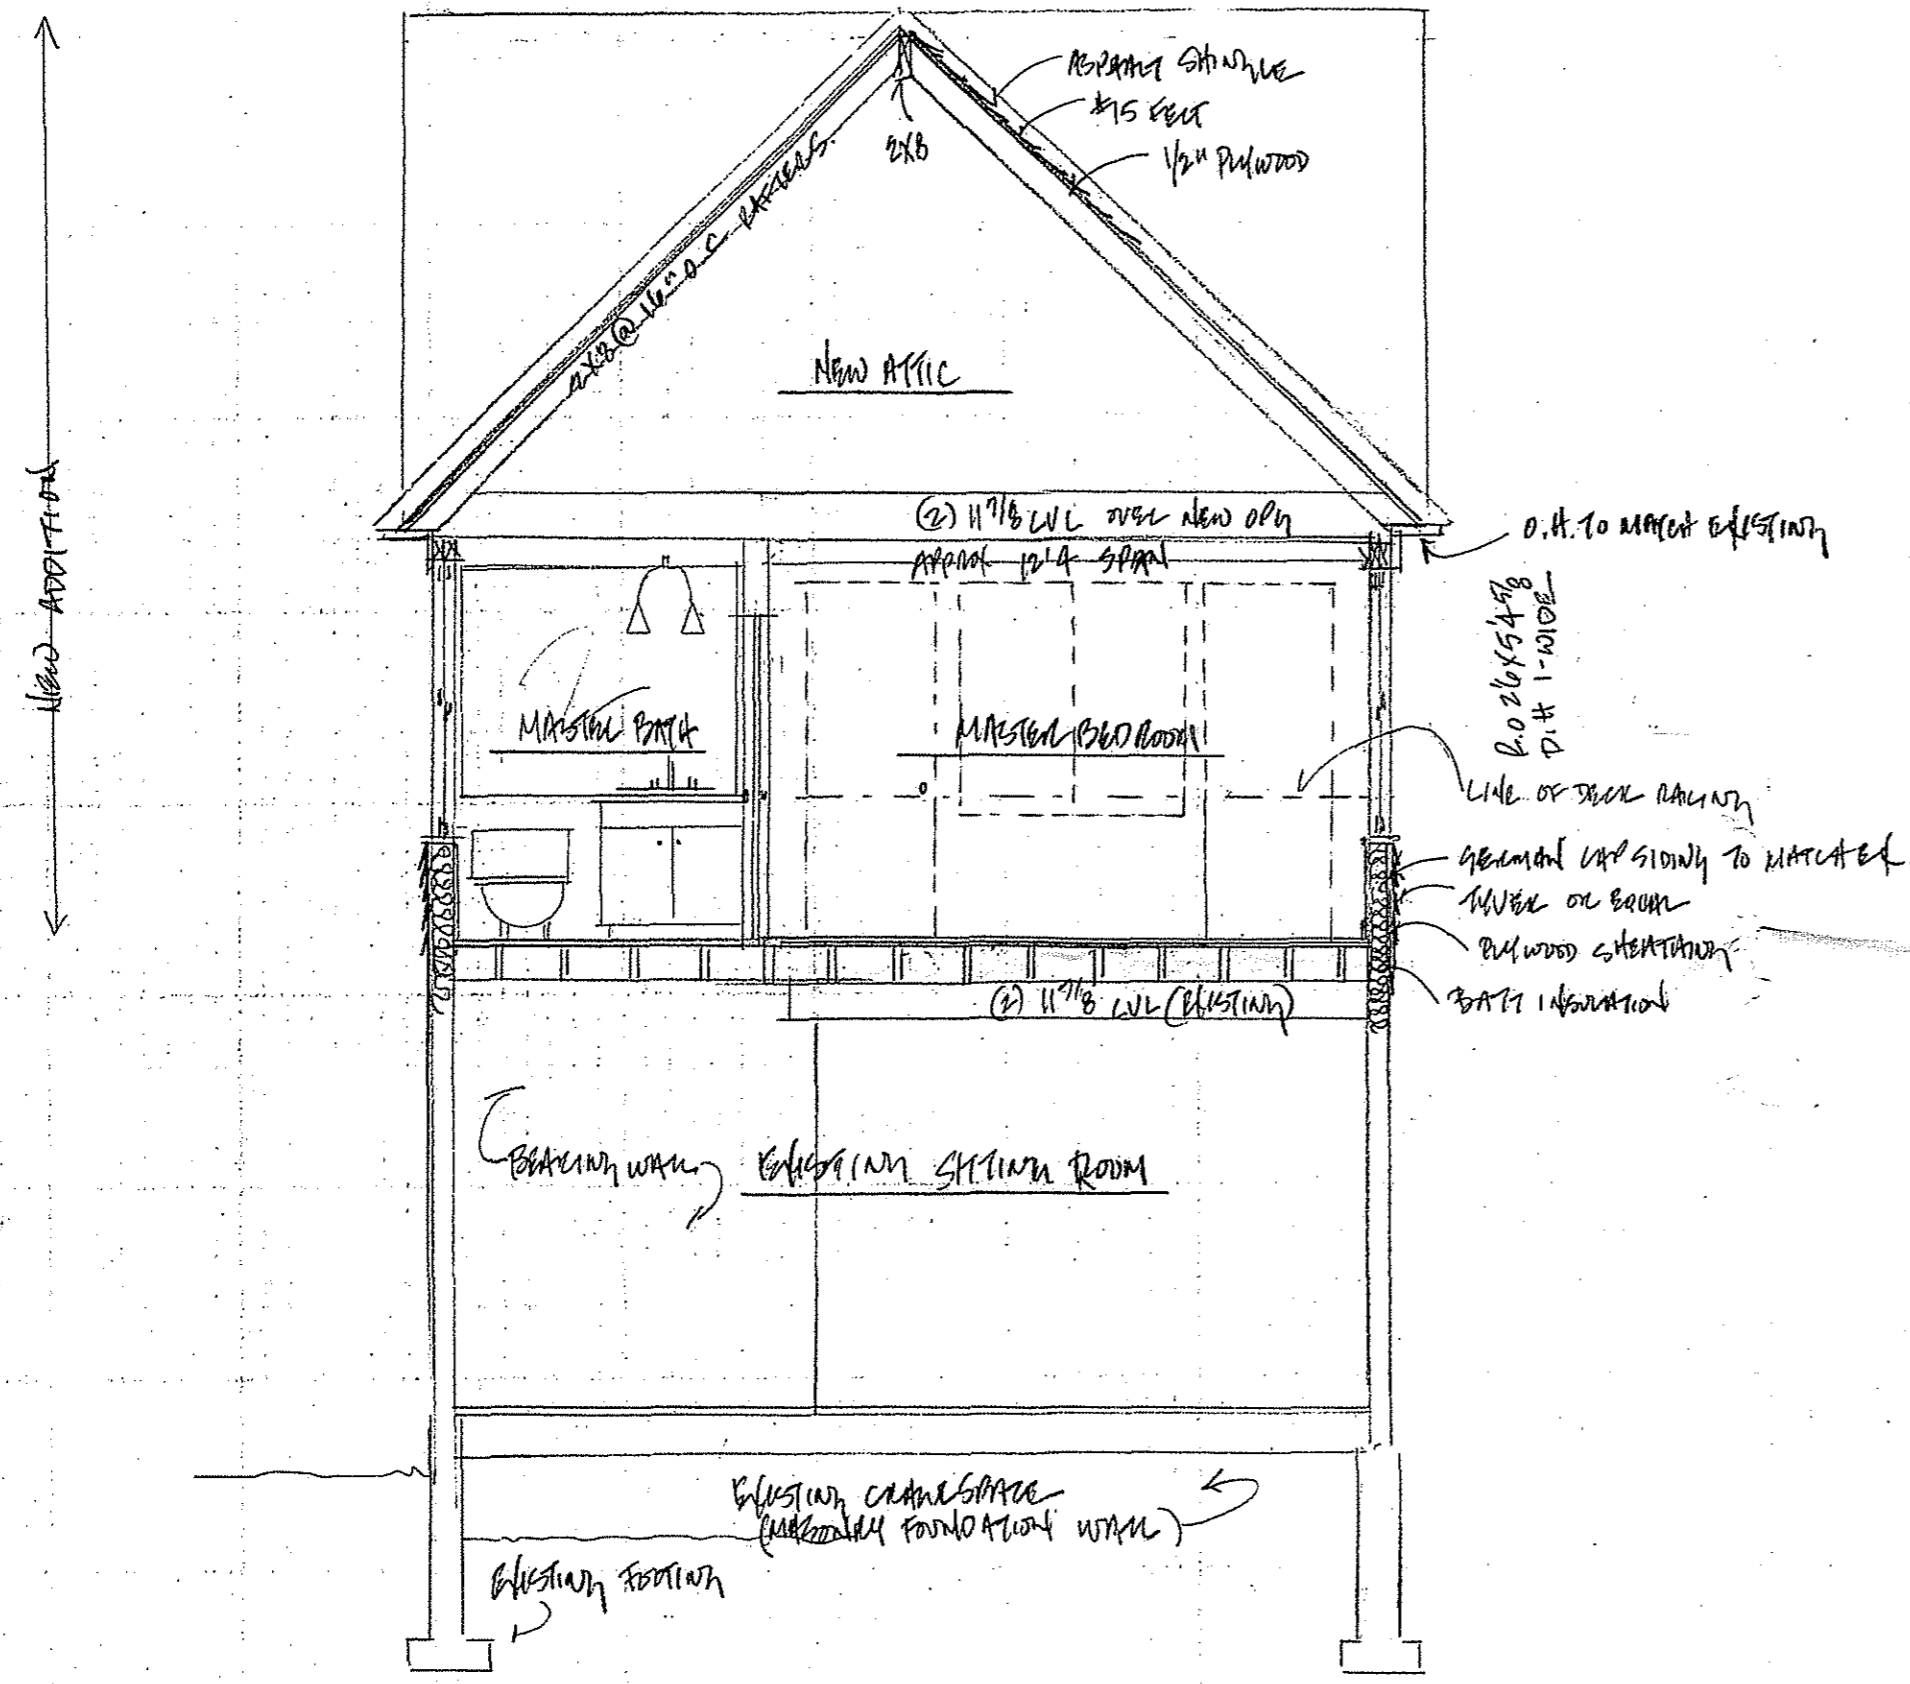 ASPHALT SHINGLE
#15 FELT
1/2" PLYWOOD
2X8
2X8 @ 16" O.C RAFTERS
NEW ATTIC
NEW ADDITION
(2) 11 7/8 LVL OVER NEW OPG
APPROX 12'4 SPAN
O.H. TO MATCH EXISTING
R.O 2'6 X 5'4 5/8
D.H 1-WIDE
MASTER BATH
MASTER BEDROOM
LINE OF DECK RAILING
GERMAN LAP SIDING TO MATCH EX
TYVEK OR EQUAL
PLYWOOD SHEATHING
BATT INSULATION
(2) 11 7/8 LVL (EXISTING)
BEARING WALL
EXISTING SITTING ROOM
EXISTING CRAWLSPACE
(MASONRY FOUNDATION WALL)
EXISTING FOOTING